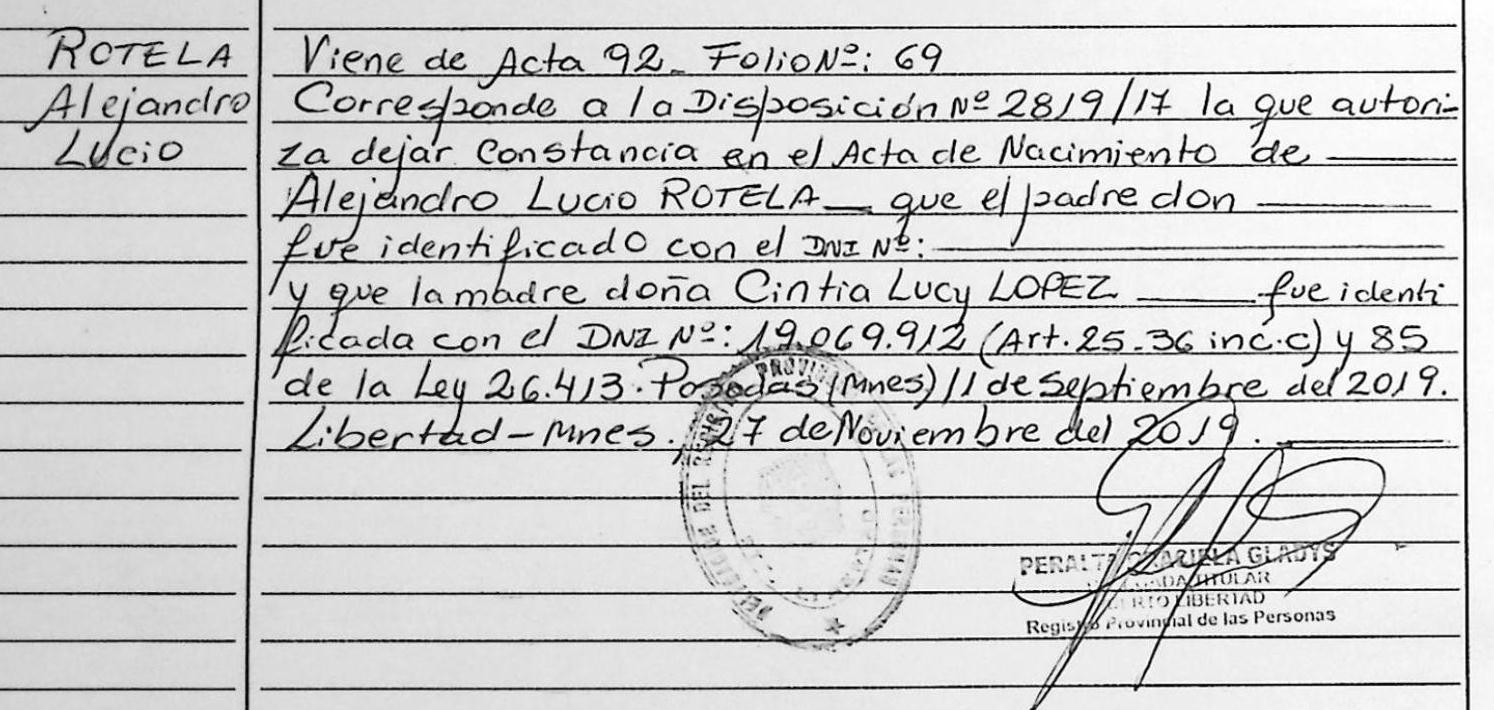 ROTELA
Alejandro
Lucio
Viene de Acta 92_ Folio Nº: 69
Corresponde a la Disposición Nº 2819/17 la que autori-
za dejar Constancia en el Acta de Nacimiento de
Alejandro Lucio ROTELA que el padre don
fue identificado con el DNI Nº:
y que la madre doña Cintia Lucy LOPEZ fue identi
ficada con el DNI Nº: 19.069.912 (Art. 25-36 inc.c) y 85
de la Ley 26.413. Posadas (Mnes) 11 de Septiembre del 2019.
Libertad-Mnes. 27 de Noviembre del 2019.
PERALTA GRACIELA GLADYS
TITULAR
LIBERTAD
Registro Provincial de las Personas